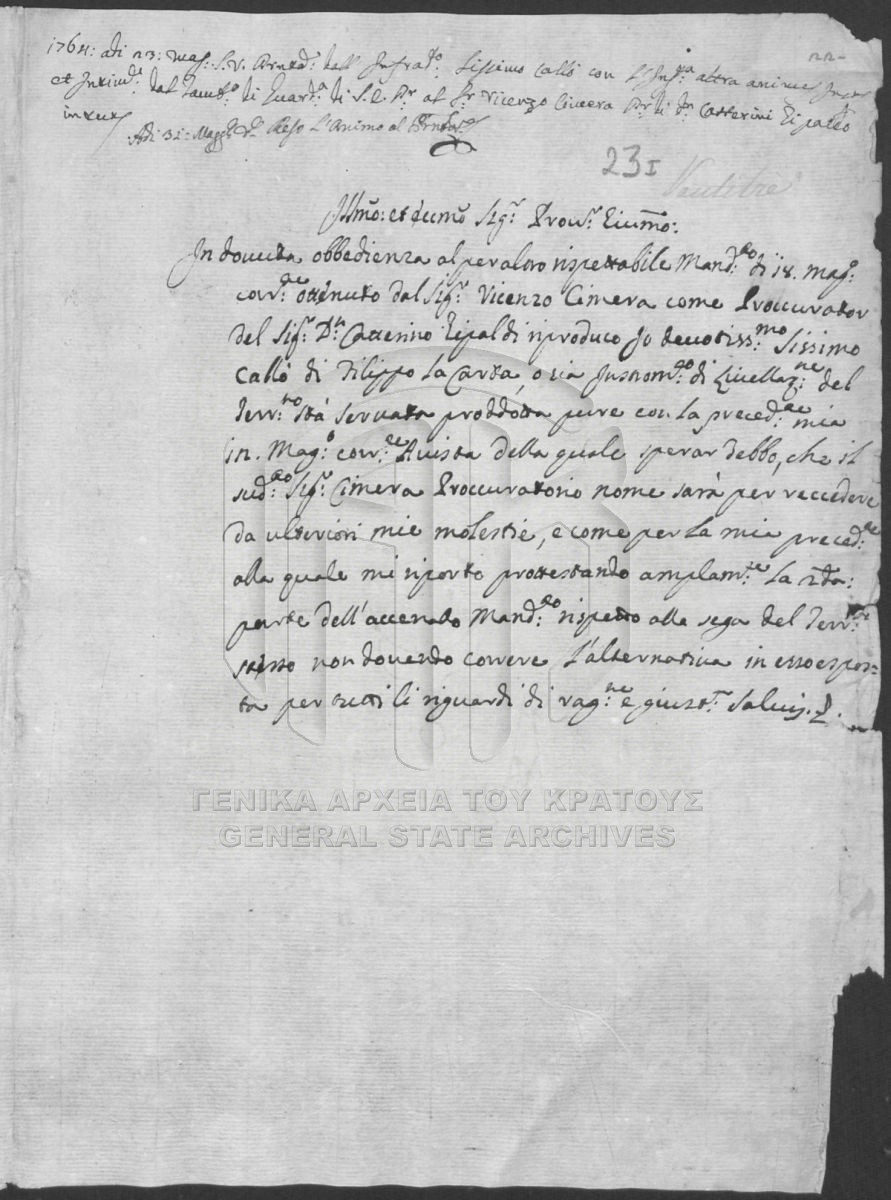 22-
1764: adi 23: Mag: S.V. dall' Infra Sissimo Callò con l' altra
et dal di Guard: di S.E. Pr al Sr Vicenzo Cimera Pr: di Dn Catterini Ripaldo
Adi 31: Magg: Reso L'Animo al
23 I
Illmo: et Eccmo Sigr Prover Eccmo:
In dovuta obbedienza al peraloro rispettabile Mand:to di 18. Mago:
corr:te ottenuto dal Sigr: Vicenzo Cimera come Proccurator
del Sigr: Dn Catterino Ripaldi riproduco Jo devotiss:mo Sissimo
Callò di Filippo la Carta, o sia Instrom:to di Livellaz:ne del
Terr:no stà servata proddotta pure con la preced:te mia
12. Mag:o corr:te Avista della quale sperar debbo, che il
sud:to Sigr: Cimera Proccuratorio nome sarà per reccedere
da ulteriori mie molestie, e come per la mia preced:te
alla quale mi riporto prottestando amplam:te la 2da:
parte dell'accenato Mand:to rispetto alla sega del Terr:no
stesso non dovendo correre l'alternativa in esso espos=
ta per tutti li riguardi di rag:ne e giust: Salvis.
ΓΕΝΙΚΑ ΑΡΧΕΙΑ ΤΟΥ ΚΡΑΤΟΥΣ
GENERAL STATE ARCHIVES